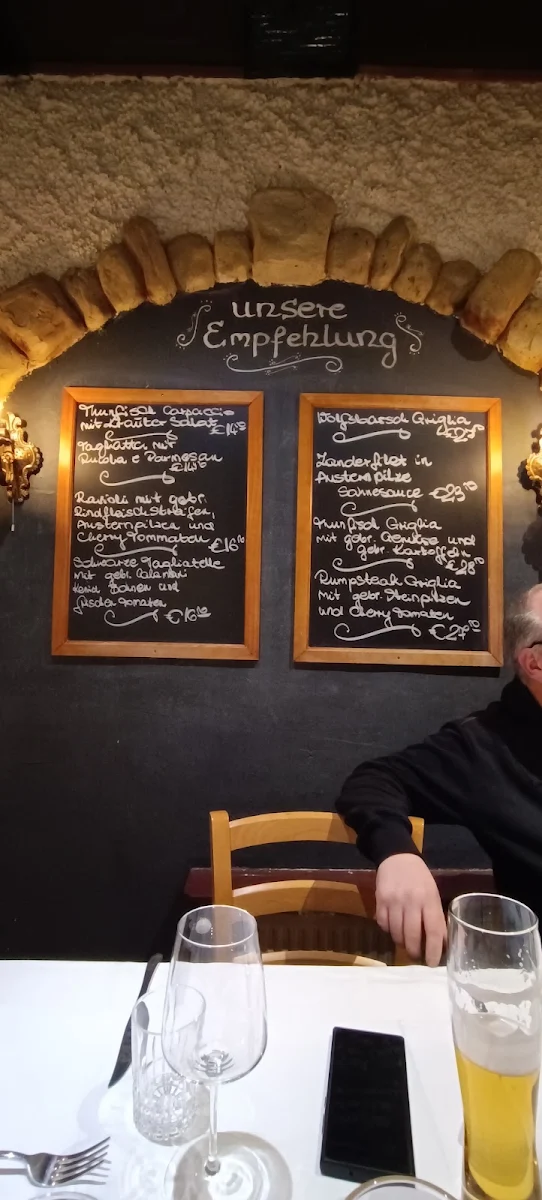 unsere
Empfehlung
Thunfisch Carpaccio
mit Kräuter Salat
€14
Tagliatta mit
Rucola e Parmesan
€14
Ravioli mit gebr.
Rindfleischstreifen,
Austernpilzen und
Cherry Tommaten
€16
Schwarze Tagliatelle
mit gebr. Calamari
Bohnen und
€16
Wolfsbarsch Griglia
€27
Zanderfilet in
Austernpilze
Sahnesauce €23
Thunfisch Griglia
mit gebr. Gemüse und
gebr. Kartoffeln
€28
Rumpsteak Griglia
mit gebr. Steinpilzen
und Cherry Tomaten
€27